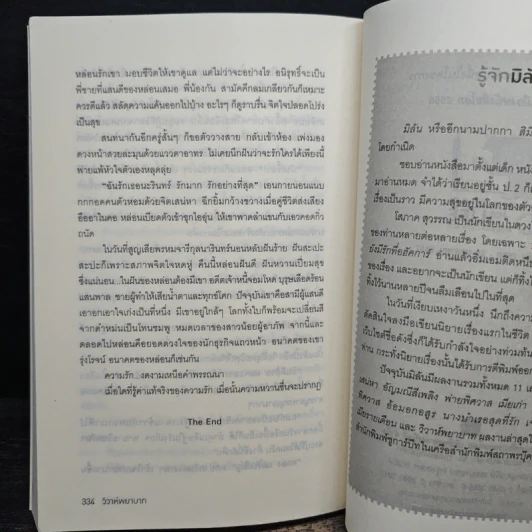 หล่อนรักเขา มอบชีวิตให้เขาดูแล แต่ไม่ว่าจะอย่างไร อนิรุทธิ์จะเป็น
พี่ชายที่แสนดีของหล่อนเสมอ พี่น้องกัน สามัคคีกลมเกลียวกันก็เหมาะ
ควรดีแล้ว สลัดความแค้นออกไปบ้าง อะไรๆ ก็ดูราบรื่น จิตใจปลอดโปร่ง
เป็นสุข
สนทนากันอีกครู่สั้นๆ ก็ขอตัววางสาย กลับเข้าห้อง เพ่งมอง
ดวงหน้าสวยละมุนด้วยแววตาอาทร ไม่เคยนึกฝันว่าจะรักใครได้เพียงนี้
พายแพ้หัวใจตัวเองหลุดลุ่ย
“ฉันรักเธอนะรินทร์ รักมาก รักอย่างที่สุด” เอนกายนอนแนบ
กกกอดคนตัวหอมด้วยจิตเสน่หา ฉีกยิ้มกว้างขวางเมื่อคู่ชีวิตส่งเสียง
อืออาในคอ หล่อนเบียดตัวเข้าซุกไออุ่น ให้เขาพาดลำแขนกับเอวคอดกิ่ว
ถนัด
ในวันที่สูญเสียพรหมจารีกุลนารินทร์นอนหลับฝันร้าย ฝันสะเปะ
สะปะก็เพราะสภาพจิตใจหดหู่ คืนนี้หล่อนฝันดี ฝันหวานเปี่ยมสุข
ซึ่งแน่นอน ในฝันของหล่อนต้องมีเขา อดีตเจ้าหนี้จอมโหด บุรุษเลือดร้อน
แสนพาล ชายผู้ทำให้เสียน้ำตาและทุกข์โศก ปัจจุบันเขาคือสามีผู้แสนดี
เอาอกเอาใจเก่งเป็นที่หนึ่ง มีเขาอยู่ใกล้ๆ โลกทั้งใบก็พร้อมจะเปลี่ยนสี
จากดำหม่นเป็นโทนชมพู หมดเวลาของสาวน้อยผู้อาภัพ จากนี้และ
ตลอดไปหล่อนคือยอดดวงใจของนักธุรกิจแถวหน้า อนาคตของเขา
รุ่งโรจน์ อนาคตของหล่อนก็เช่นกัน
ความรัก งดงามเหนือคำพรรณนา
เมื่อใดที่รู้ค่าแท้จริงของความรัก เมื่อนั้นความหวานชื่นจะปรากฏ
The End
334 วิวาห์พยาบาท
รู้จักมิลั
มิลัน หรืออีกนามปากกา สิมิ
โดยกำเนิด
ชอบอ่านหนังสือมาตั้งแต่เด็ก หนัง
มาอ่านหมด จำได้ว่าเรียนอยู่ชั้น ป.2 ก็
เรื่องเป็นราว มีความสุขอยู่ในโลกของตัว
โสภาค สุวรรณ เป็นนักเขียนในดวง
ของท่านหลายต่อหลายเรื่อง โดยเฉพาะ
ยังมีรักที่อลัสการ์ อ่านแล้วอิ่มเอมติดหนึ
ของเรื่อง และอยากจะเป็นนักเขียน แต่ก็ทิ้ง
ทิ้งไว้นานหลายปีจนลืมเลือนไปในที่สุด
ในวันที่เงียบเหงาวันหนึ่ง นึกถึงความ
ตัดสินใจลงมือเขียนนิยายเรื่องแรกในชีวิต
เว็บไซต์ชื่อดังซึ่งก็ได้รับกำลังใจอย่างท่วมท้น
อ่าน กระทั่งนิยายเรื่องนั้นได้รับการตีพิมพ์ออก
ปัจจุบันมิลันมีผลงานรวมทั้งหมด 11 เล่
เสน่หา อัญมณีสีเพลิง พ่ายพิศวาส เมียเก่า
พิศวาส อ้อมอกอสูร นางบำเรอสุดที่รัก เจ้
เมียรายเดือน และ วิวาห์พยาบาท ผลงานล่าสุดใ
สำนักพิมพ์ชูการ์บีทในเครือสำนักพิมพ์สถาพรบุ๊ค